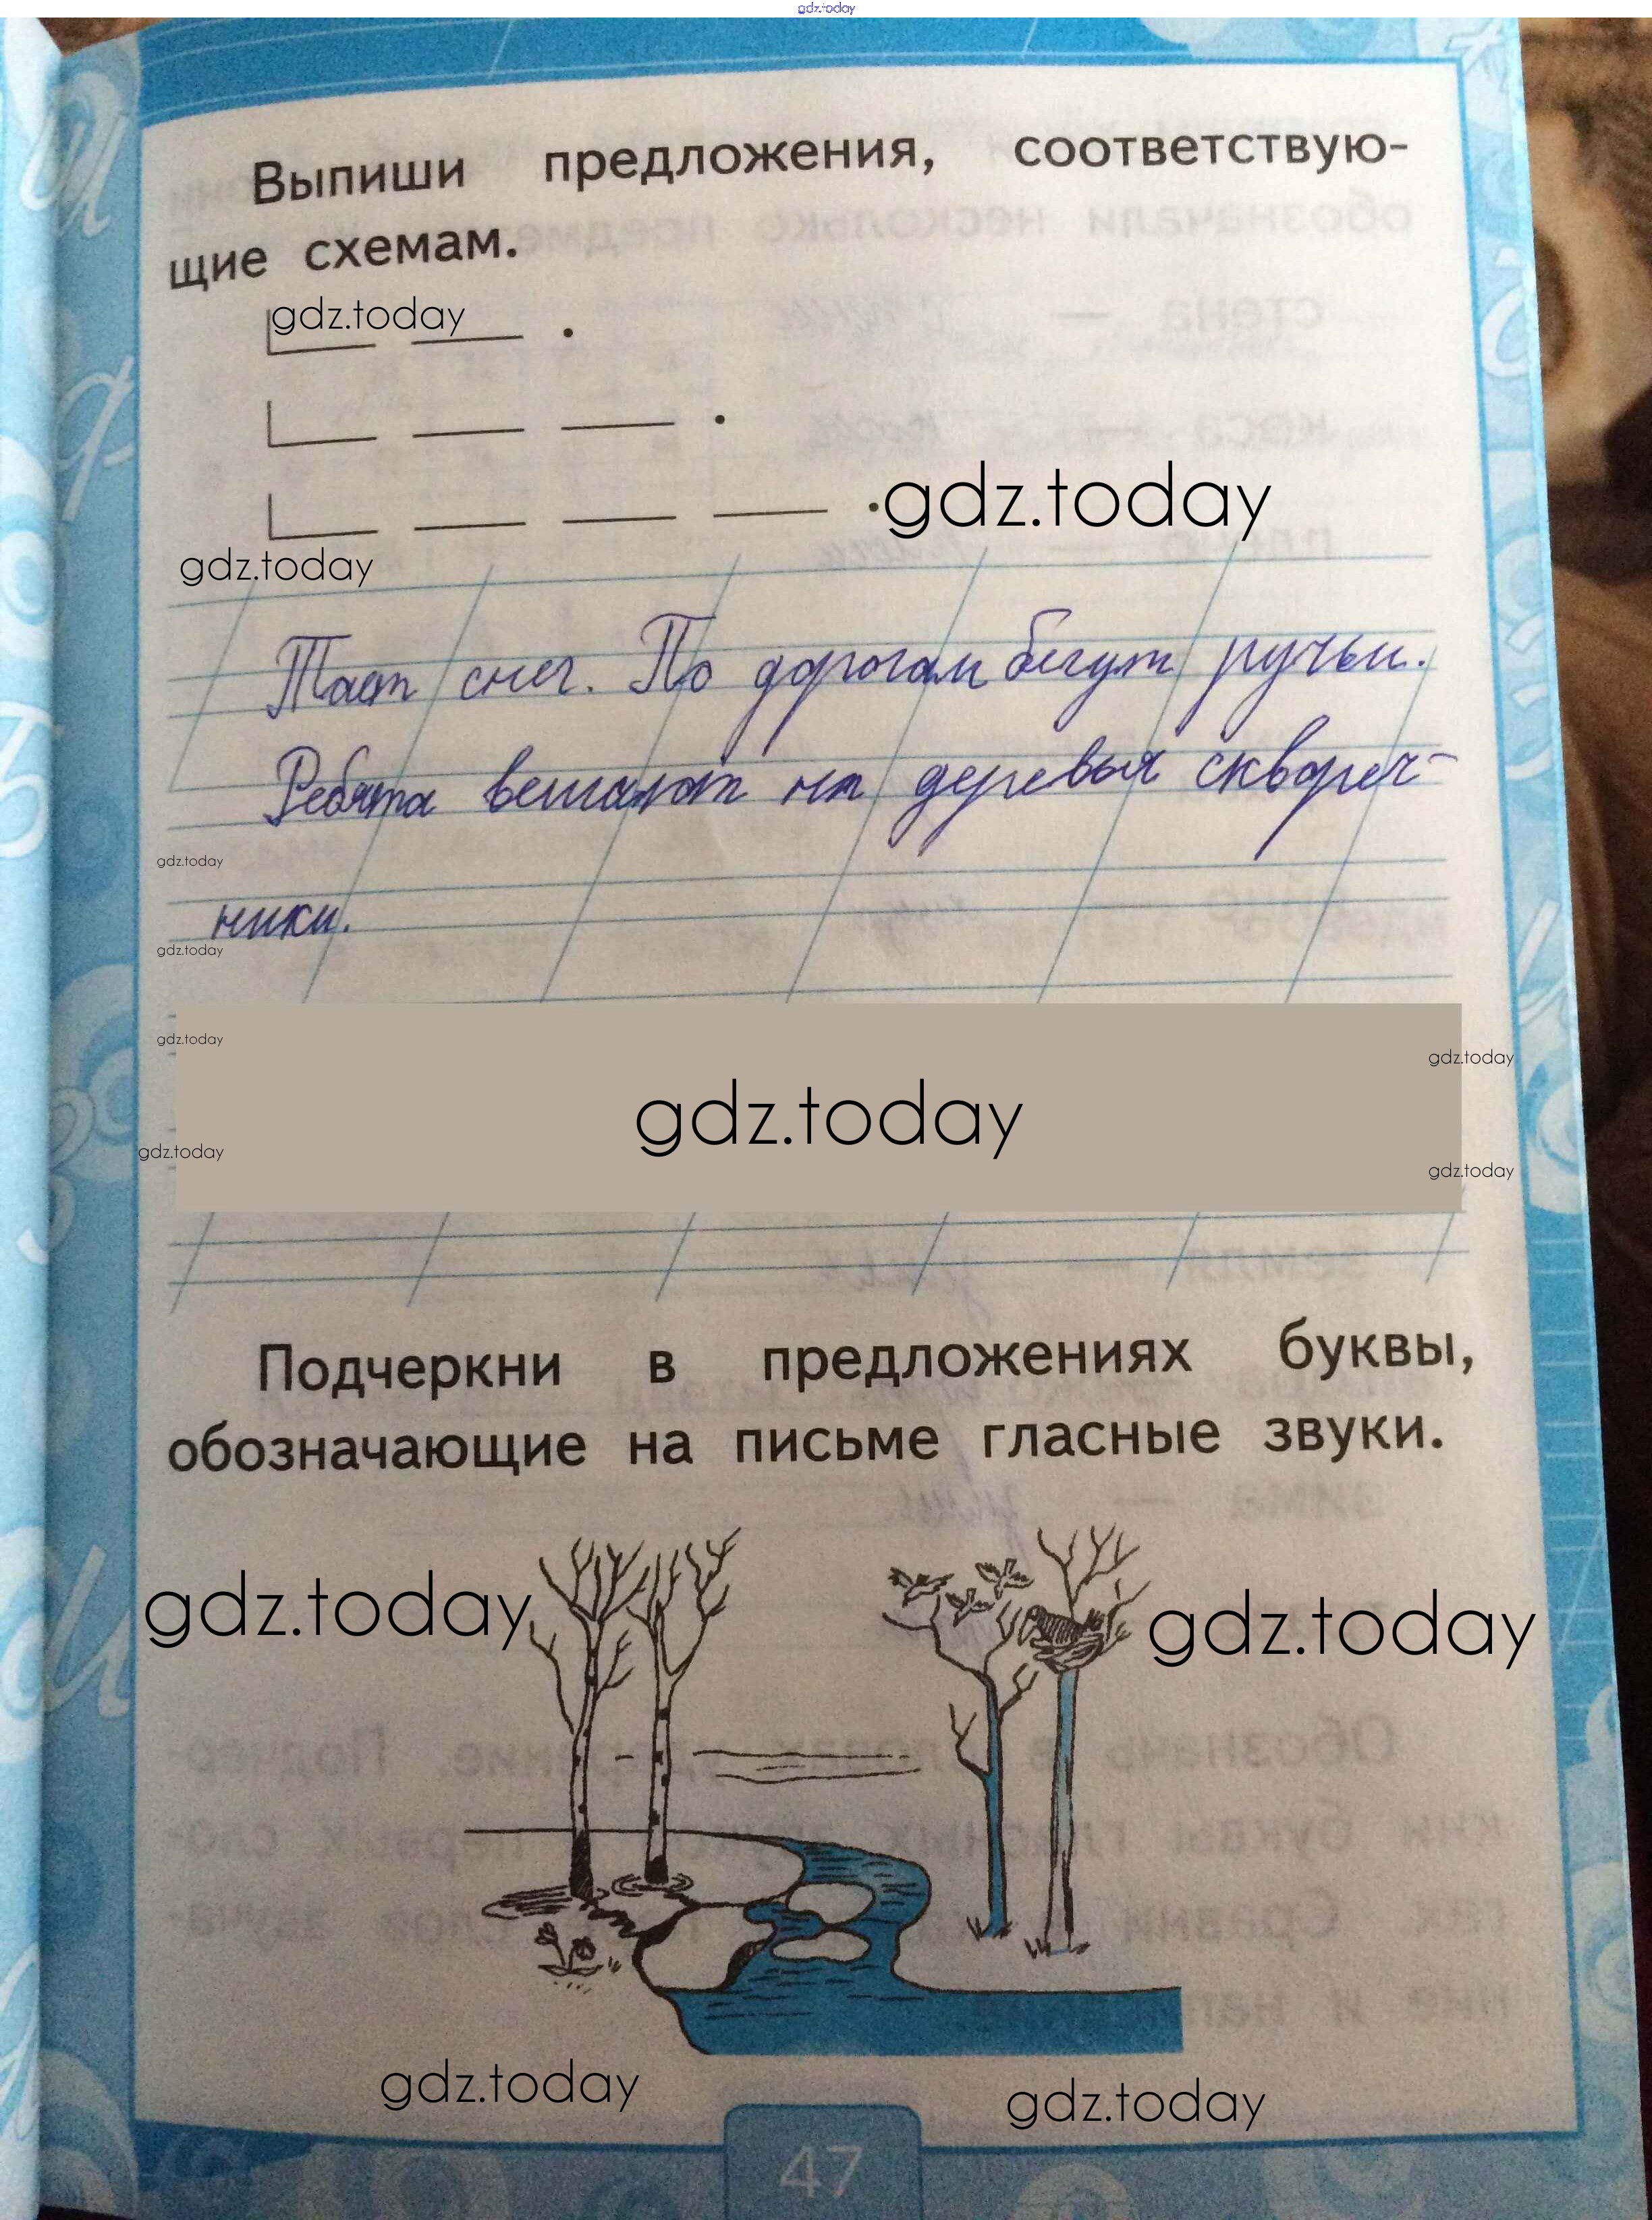 gdz.today
Выпиши предложения, соответствую-
щие схемам.
gdz.today
gdz.today
gdz.today
Тает снег. По дорогам бегут ручьи.
Ребята вешают на деревья сквореч-
gdz.today
ники.
gdz.today
gdz.today
gdz.today
gdz.today
gdz.today
gdz.today
Подчеркни в предложениях буквы,
обозначающие на письме гласные звуки.
gdz.today
gdz.today
gdz.today
gdz.today
47